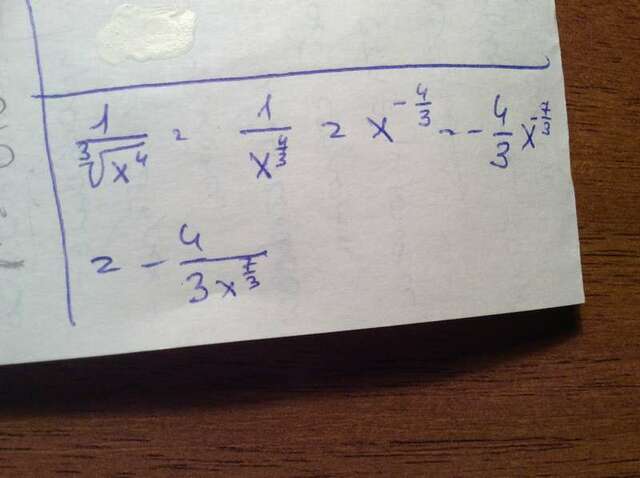 1/∛(x⁴) = 1/x^(4/3) = x^(-4/3) = -4/3 x^(-7/3)
= -4/(3x^(7/3))